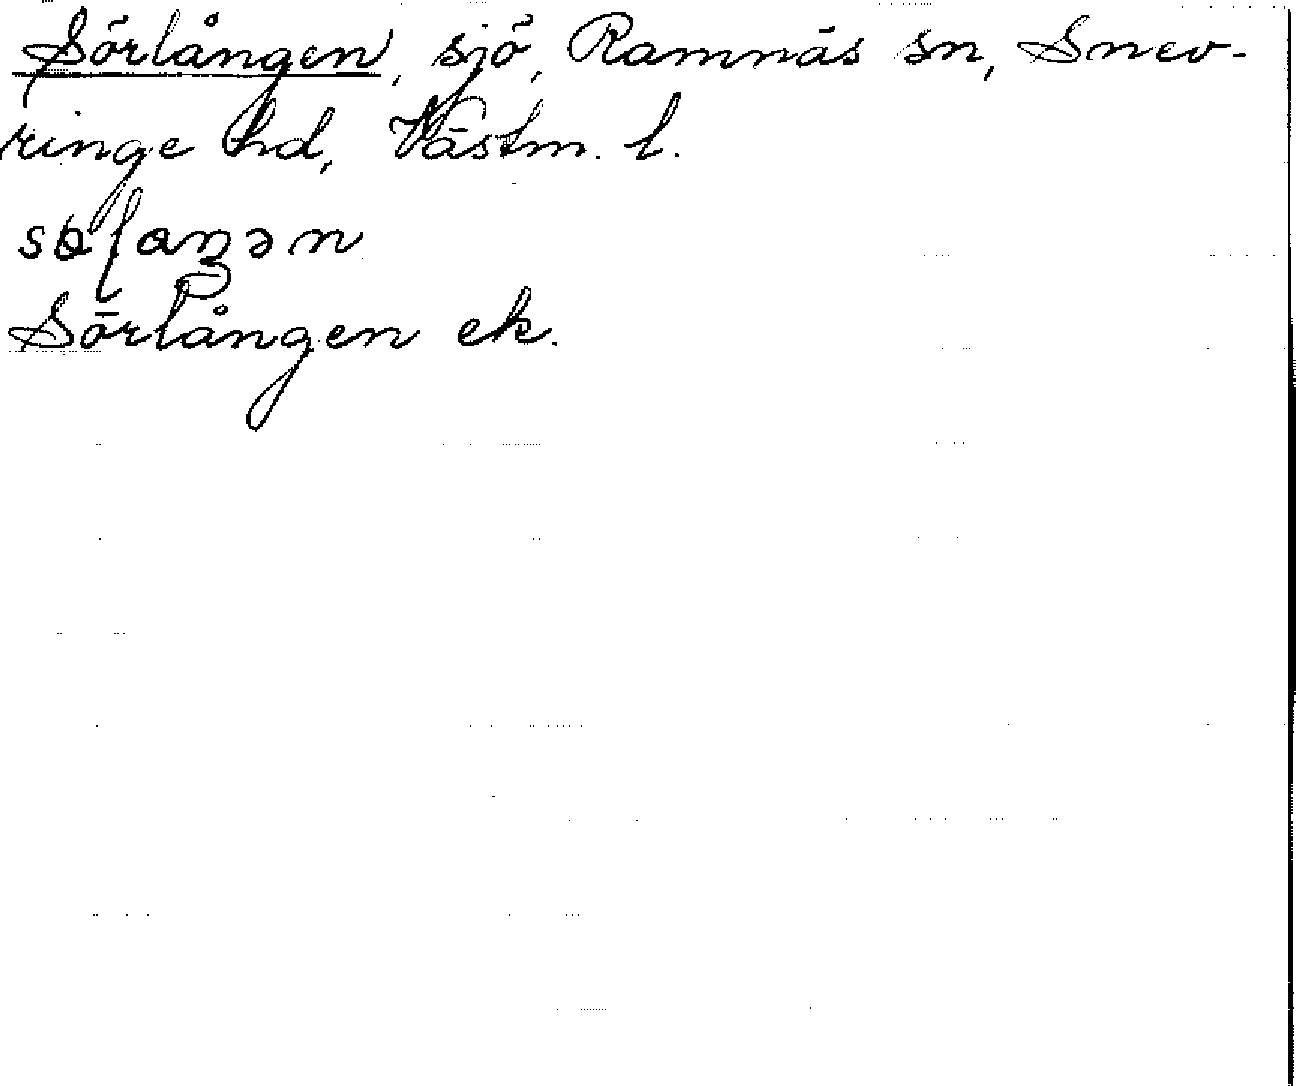 Sörlången, sjö, Ramnäs sn, Snev-
ringe hd, Västm. l.
Sörlången ek.